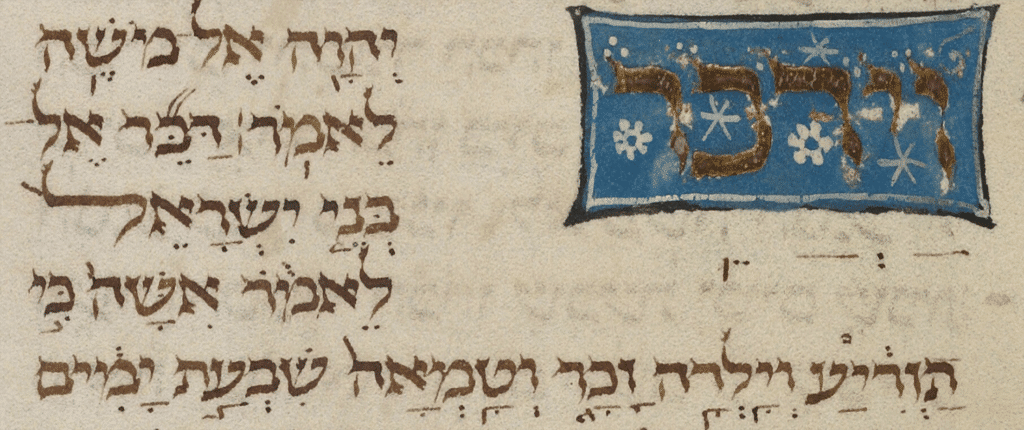 וַיְדַבֵּר
יְהוָה אֶל מֹשֶׁה
לֵּאמֹר׃ דַּבֵּר אֶל
בְּנֵי יִשְׂרָאֵל
לֵאמֹר אִשָּׁה כִּי
תַזְרִיעַ וְיָלְדָה זָכָר וְטָמְאָה שִׁבְעַת יָמִים